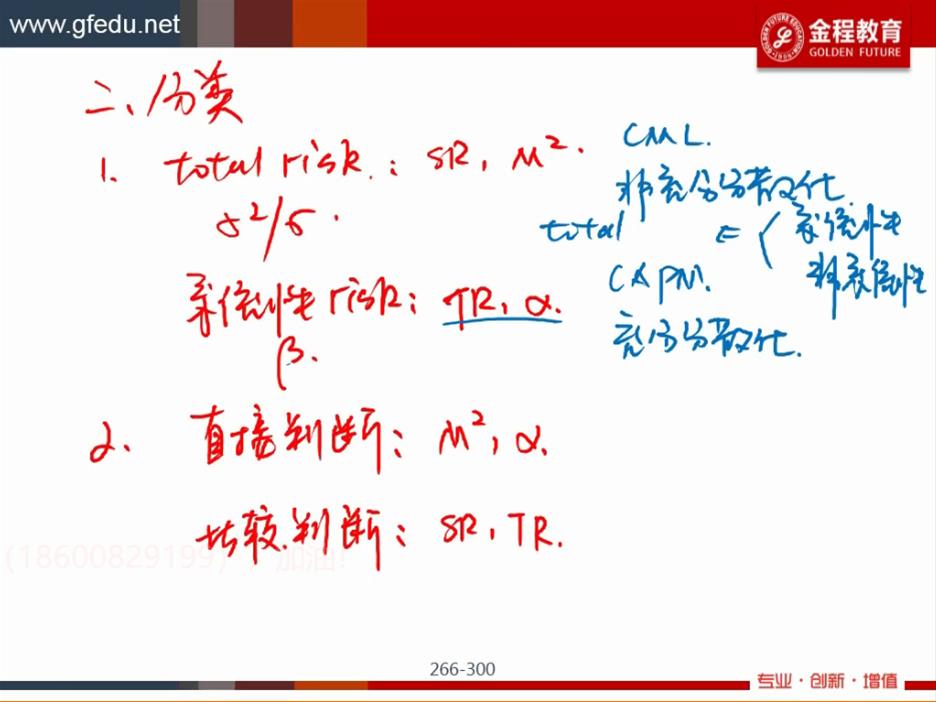 www.gfedu.net
金程教育
GOLDEN FUTURE
二、分类
1. total risk : SR, M². CML.
σ²/σ. 非充分分散化.
total = { 系统性
非系统性
系统性 risk: TR, α. CAPM.
β. 充分分散化.
2. 直接判断: M², α.
比较判断: SR, TR.
(18600829199) , 加油!
266-300
专业·创新·增值